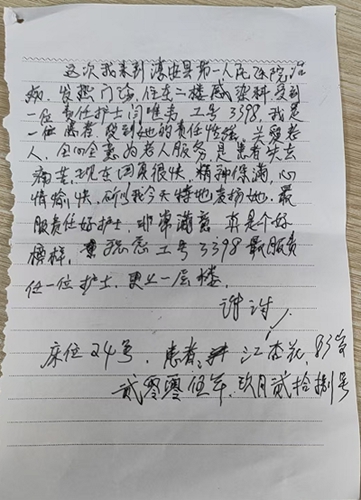 这次我来到淳安县第一人民医院治
病，发热门诊，住在二楼感染科，受到
一位责任护士闫唯为，工号3398，我是
一位患者，受到她的责任性强，关爱老
人，全心全意为老人服务，是患者失去
痛苦，现在回复很快，精神饱满，心
情愉快，所以我今天特地表扬她，最
服责任好护士，非常满意，真是个好
榜样，工号3398最服责
任一位护士，更上一层楼，
谢谢，
床位24号，患者，江杏花，83岁
贰零零伍年，玖月贰拾捌号